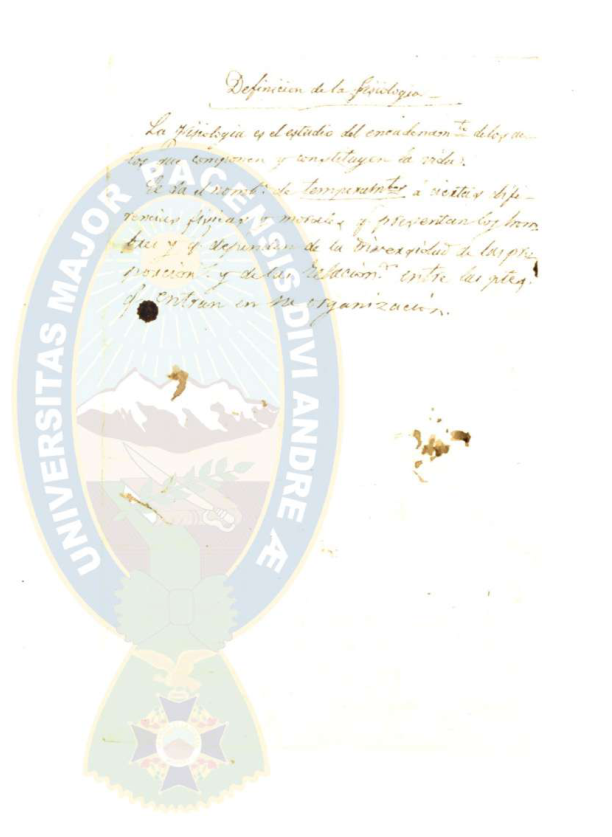 Definicion de la fisiologia
La fisiologia es el estudio del encadenam.to de los ac-
tos que componen y constituyen la vida.
Se da el nomb. de temperamtos á ciertas dife-
rencias fisicas y morales q presentan los hom-
bres y q dependen de la diversidad de las pro
posicion.s y de las relacion.s entre las ptes
q entran en su organización.
UNIVERSITAS MAJOR PACENSIS DIVI ANDRE Æ